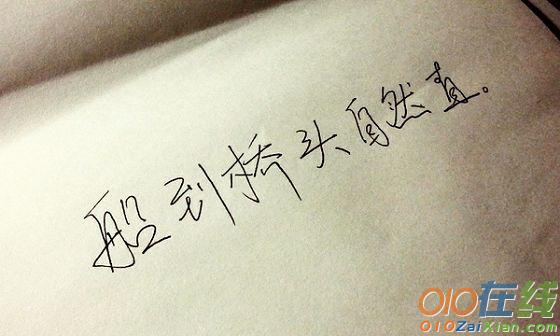 船到桥头自然直。
010在线
010ZaiXian.com